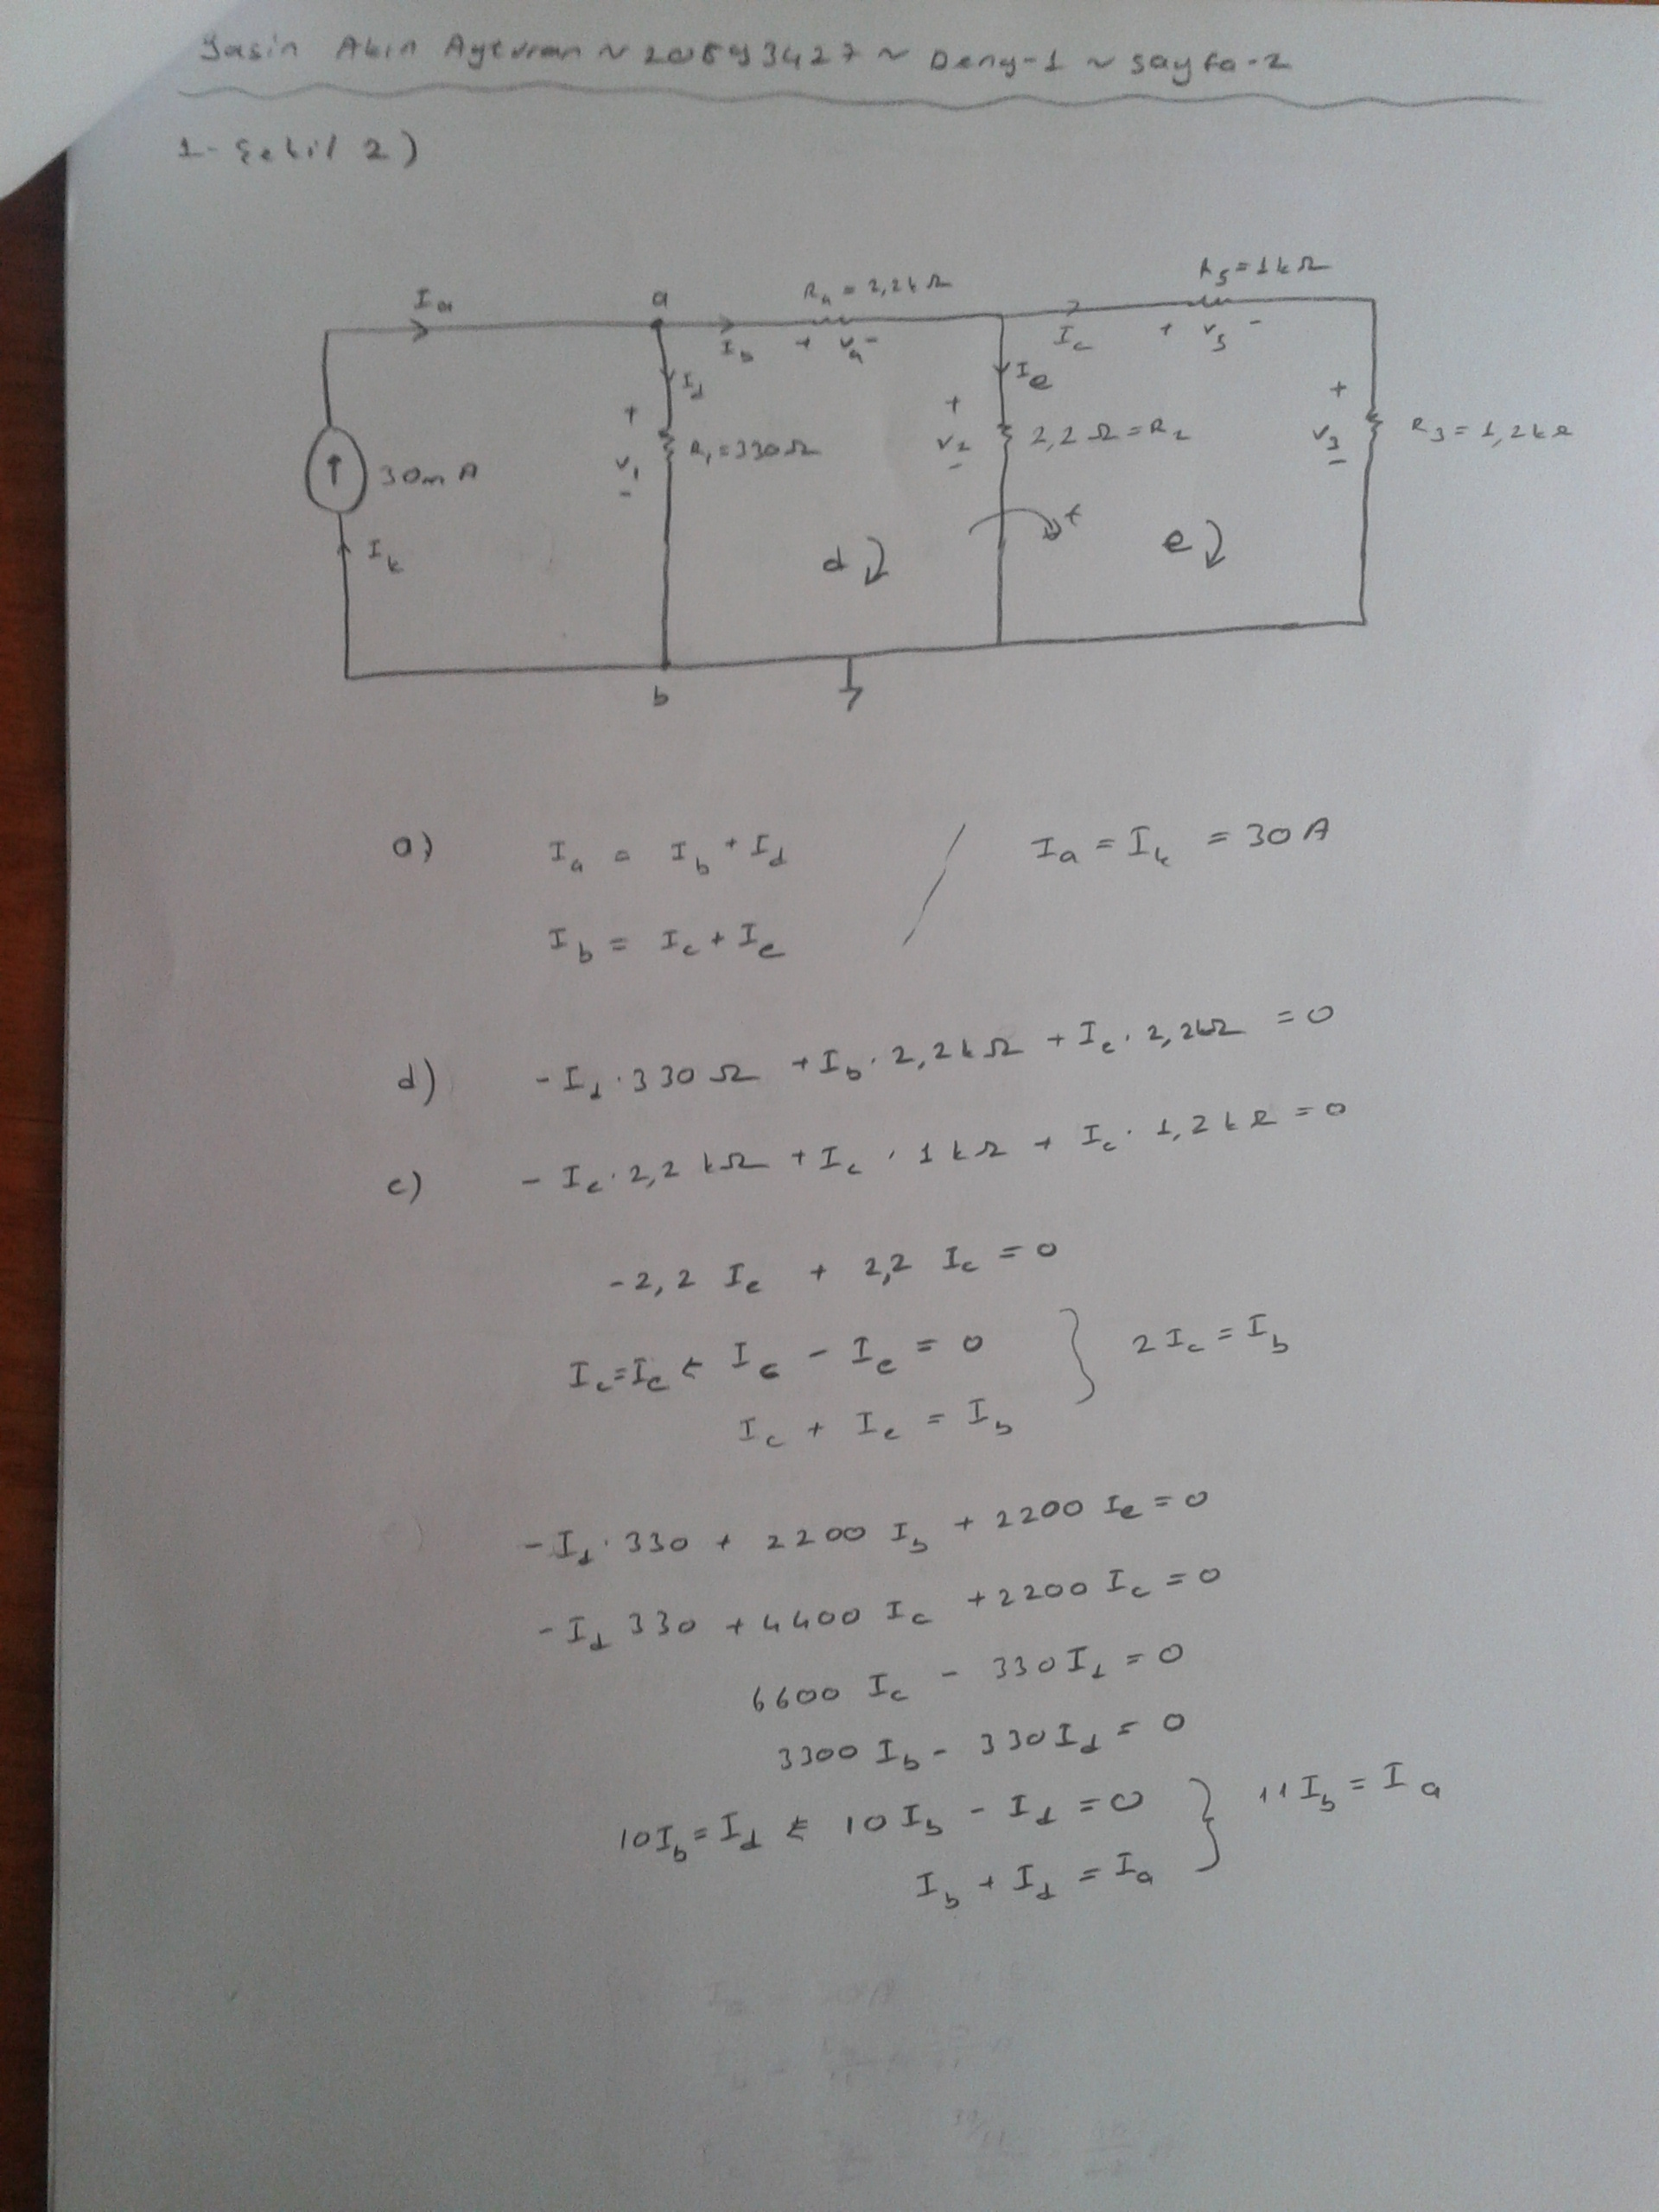 Yasin Akın Ayturan ~ 20893427 ~ Deney-1 ~ Sayfa-2
1- Şekil 2)
R5 = 1kΩ
Ia a R4 = 2,2kΩ
Ib + V4 - Ic + V5 -
Id Ie
+ V1 - R1 = 330Ω + V2 - 2,2 Ω = R2 + V3 - R3 = 1,2kΩ
30mA
Ik d e
b
a) Ia = Ib + Id / Ia = Ik = 30 A
Ib = Ic + Ie
d) -Id · 330 Ω + Ib · 2,2kΩ + Ie · 2,2kΩ = 0
e) - Ie · 2,2 kΩ + Ic · 1kΩ + Ic · 1,2kΩ = 0
-2,2 Ie + 2,2 Ic = 0
Ic = Ie ← Ic - Ie = 0 } 2Ic = Ib
Ic + Ie = Ib
-Id · 330 + 2200 Ib + 2200 Ie = 0
-Id 330 + 4400 Ic + 2200 Ic = 0
6600 Ic - 330 Id = 0
3300 Ib - 330 Id = 0
10Ib = Id ← 10 Ib - Id = 0 } 11 Ib = Ia
Ib + Id = Ia